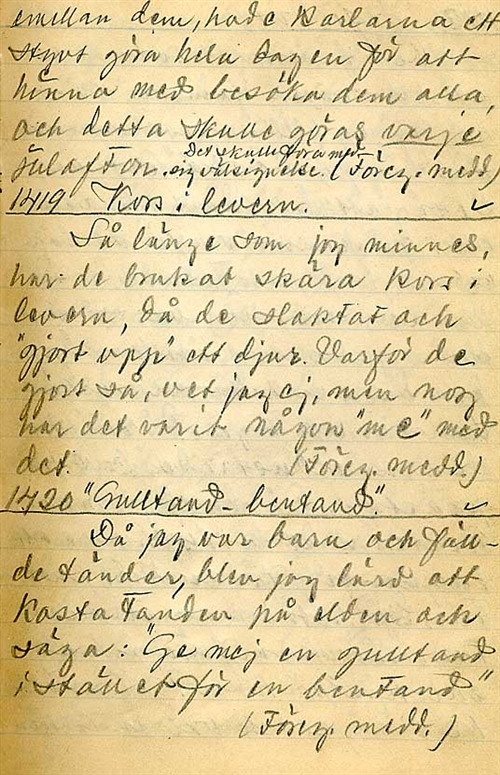 emellan dem, hade karlarna ett
styvt göra hela dagen för att
hinna med besöka dem alla,
och detta skulle göras varje
Det skulle föra med
julafton. sig välsignelse. (Föreg. medd.)
1419 Kors i levern. ✓
Så länge som jag minnes,
har de brukat skära kors i
levern, då de slaktat och
"gjort upp" ett djur. Varför de
gjort så, vet jag ej, men nog
har det varit någon "me" med
det. (Föreg. medd.)
1420 "Gulltand - bentand". ✓
Då jag var barn och fäll-
de tänder, blev jag lärd att
kasta tanden på elden och
säga: "Ge mej en gulltand
i stället för en bentand"
(Föreg. medd.)